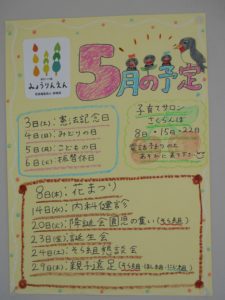 みょうりんえん
5月の予定
3日(土):憲法記念日
4日(日):みどりの日
5日(月):こどもの日
6日(火):振替休日
子育てサロン
さくらんぼ
8日・15日・22日
8日(木):花まつり
14日(水):内科健診
20日(火):降誕会園児の集い(そら組)
23日(金):誕生会
24日(土):そら組懇談会
29日(木):親子遠足(そら組・ほし組・にじ組)